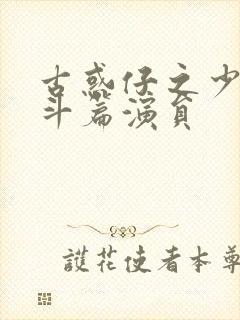 古惑仔之少
斗篇演员
護花使者本尊